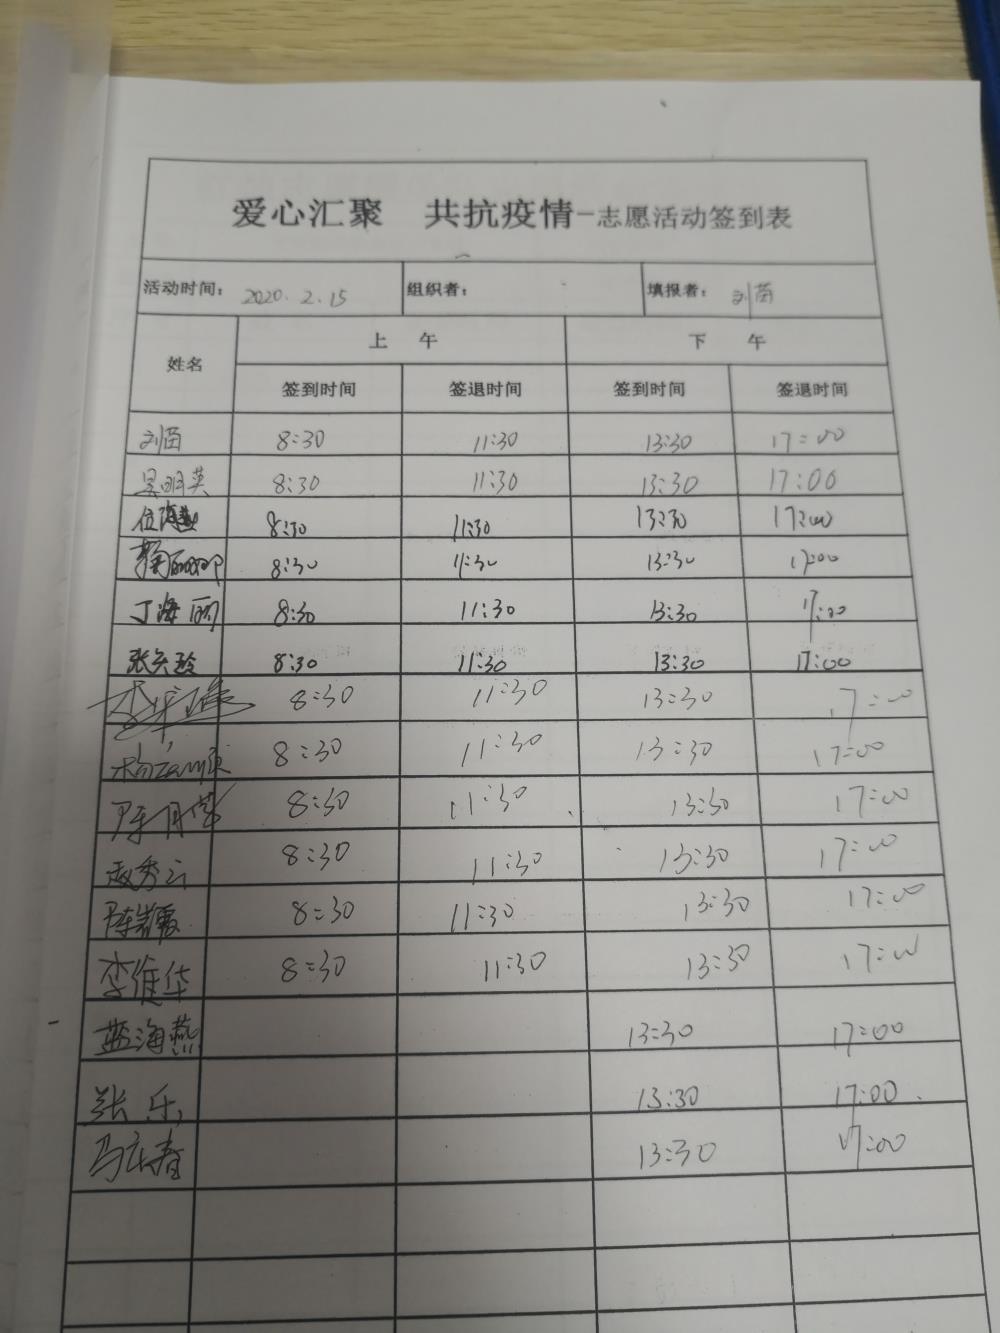 爱心汇聚 共抗疫情—志愿活动签到表
活动时间: 2020.2.15 组织者: 填报者: 刘苗
姓名 上 午 下 午
签到时间 签退时间 签到时间 签退时间
刘苗 8:30 11:30 13:30 17:00
吴明英 8:30 11:30 13:30 17:00
8:30 11:30 13:30 17:00
8:30 11:30 13:30 17:00
丁海丽 8:30 11:30 13:30 17:00
张关玲 8:30 11:30 13:30 17:00
8:30 11:30 13:30 17:00
8:30 11:30 13:30 17:00
8:30 11:30 13:30 17:00
赵秀云 8:30 11:30 13:30 17:00
8:30 11:30 13:30 17:00
李维华 8:30 11:30 13:30 17:00
蓝海燕 13:30 17:00
张乐 13:30 17:00
13:30 17:00